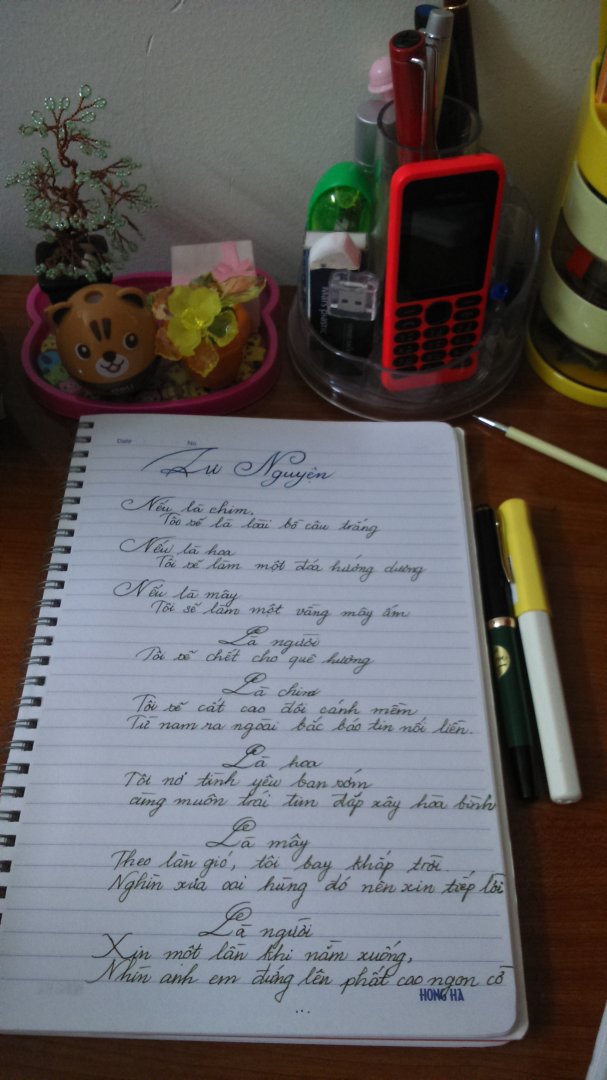 Date No.
Tự Nguyện
Nếu là chim,
Tôi sẽ là loài bồ câu trắng
Nếu là hoa
Tôi sẽ làm một đóa hướng dương
Nếu là mây
Tôi sẽ làm một vầng mây ấm
Là người
Tôi sẽ chết cho quê hương
Là chim
Tôi sẽ cất cao đôi cánh mềm
Từ nam ra ngoài bắc báo tin nối liền.
Là hoa
Tôi nở tình yêu ban sớm
cùng muôn trái tim đắp xây hòa bình
Là mây
Theo làn gió, tôi bay khắp trời
Nghìn xưa oai hùng đó nên xin tiếp lời
Là người
Xin một lần khi nằm xuống,
Nhìn anh em đứng lên phất cao ngọn cờ
HONG HA
...